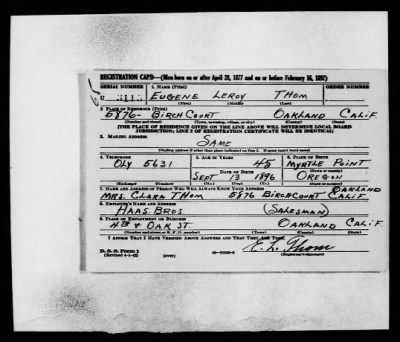 REGISTRATION CARD—(Men born on or after April 28, 1877 and on or before February 16, 1897)
SERIAL NUMBER 1. NAME (Print) ORDER NUMBER
U 3115 EUGENE LEROY THOM
(First) (Middle) (Last)
2. PLACE OF RESIDENCE (Print)
5876- BIRCH COURT OAKLAND CALIF.
(Number and street) (Town, township, village, or city) (County) (State)
[THE PLACE OF RESIDENCE GIVEN ON THE LINE ABOVE WILL DETERMINE LOCAL BOARD
JURISDICTION; LINE 2 OF REGISTRATION CERTIFICATE WILL BE IDENTICAL]
3. MAILING ADDRESS
SAME
[Mailing address if other than place indicated on line 2. If same insert word same]
4. TELEPHONE 5. AGE IN YEARS 6. PLACE OF BIRTH
OLY 5631 45 MYRTLE POINT
DATE OF BIRTH
SEPT 13 1896 OREGON
(Exchange) (Number) (Mo.) (Day) (Yr.) (State or country)
7. NAME AND ADDRESS OF PERSON WHO WILL ALWAYS KNOW YOUR ADDRESS OAKLAND
MRS. CLARA THOM 5876 BIRCH COURT CALIF
8. EMPLOYER'S NAME AND ADDRESS
HAAS BROS. (SALESMAN)
9. PLACE OF EMPLOYMENT OR BUSINESS
4TH & OAK ST. OAKLAND CALIF.
(Number and street or R. F. D. number) (Town) (County) (State)
I AFFIRM THAT I HAVE VERIFIED ABOVE ANSWERS AND THAT THEY ARE TRUE.
D. S. S. Form 1 E. L. Thom
(Revised 4-1-42) (over) (Registrant's signature)